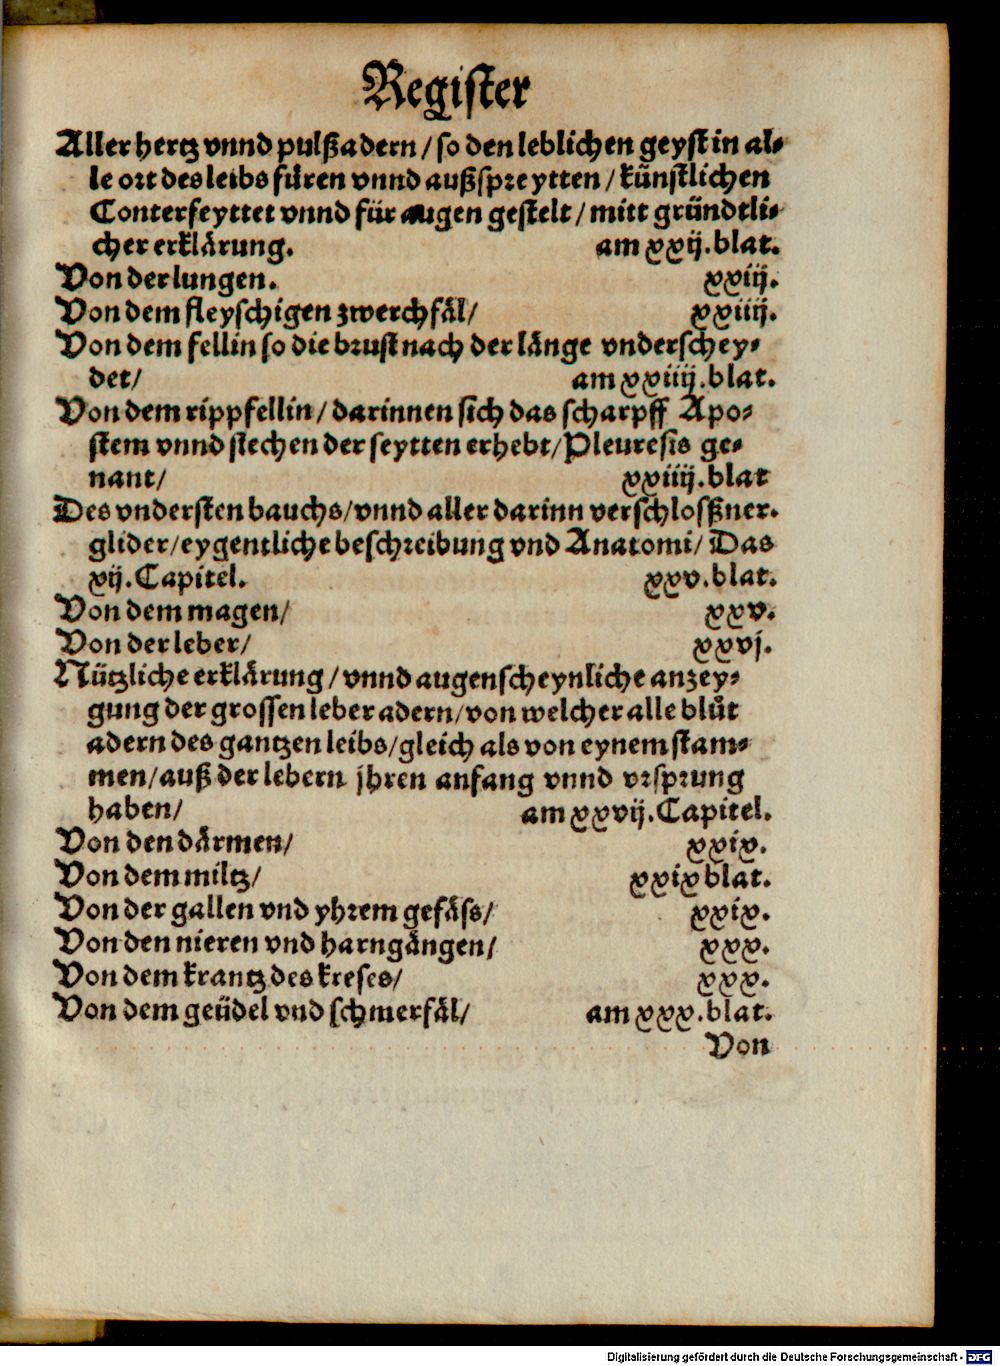 Register
Aller hertz vnnd pulßadern/ so den leblichen geyst in al⸗
le ort des leibs fůren vnnd außspreytten/ künstlichen
Conterfeyttet vnnd für augen gestelt/ mitt gründtli⸗
cher erklärung. am xxij. blat.
Von der lungen. xxiij.
Von dem fleyschigen zwerchfäl/ xxiiij.
Von dem fellin so die brust nach der länge vnderschey⸗
det/ am xxiiij. blat.
Von dem rippfellin/ darinnen sich das scharpff Apo⸗
stem vnnd stechen der seytten erhebt/ Pleuresis ge⸗
nant/ xxiiij. blat
Des vndersten bauchs/ vnnd aller darinn verschloßner.
glider/ eygentliche beschreibung vnd Anatomi/ Das
xij. Capitel. xxv. blat.
Von dem magen/ xxv.
Von der leber/ xxvj.
Nützliche erklärung/ vnnd augenscheynliche anzey⸗
gung der grossen leber adern/ von welcher alle blůt
adern des gantzen leibs/ gleich als von eynem stam⸗
men/ auß der lebern jhren anfang vnnd vrsprung
haben/ am xxvij. Capitel.
Von den därmen/ xxix.
Von dem miltz/ xxix blat.
Von der gallen vnd yhrem gefäss/ xxix.
Von den nieren vnd harngängen/ xxx.
Von dem krantz des kreses/ xxx.
Von dem geüdel vnd schmerfäl/ am xxx. blat.
Von
Digitalisierung gefördert durch die Deutsche Forschungsgemeinschaft - DFG